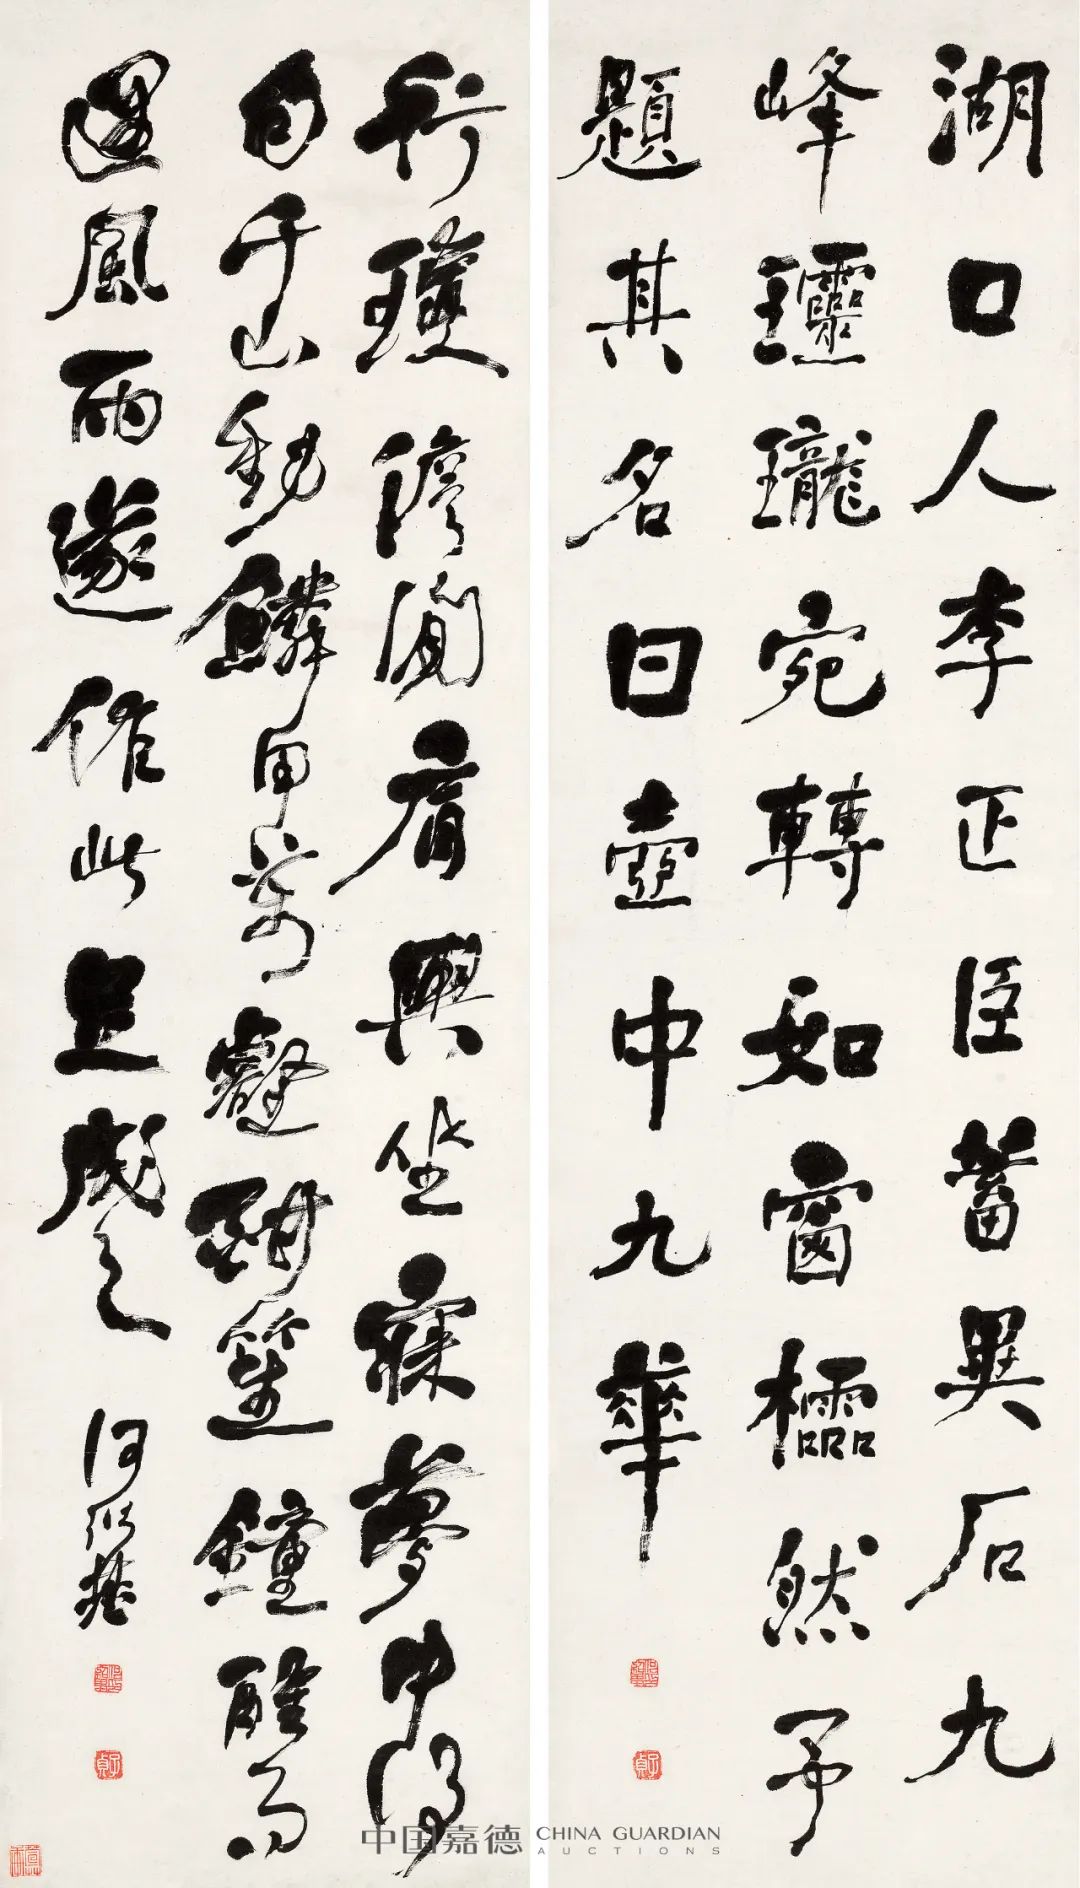 湖口人李正臣蓄異石九
峰瓏宛轉如窗櫺然予
題其名曰壺中九華
子貞
行瓊儋間肩輿坐寐夢中得
句千山動鱗甲萬壑酣笙鐘醒而
遇風雨遂作此足成之
何紹基
子貞
中国嘉德 CHINA GUARDIAN
AUCTIONS